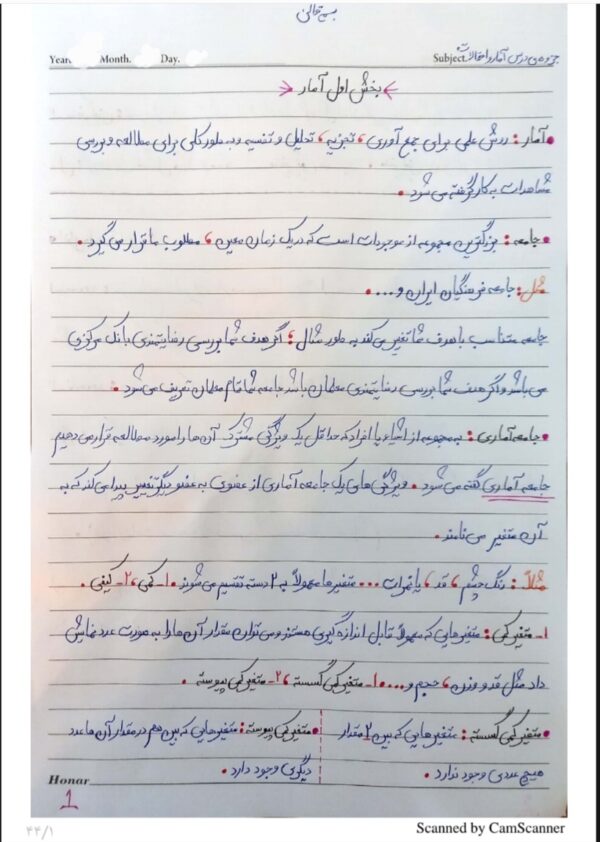 بسمه تعالی
Year. Month. Day. Subject. جزوه ی درس آمار و احتمالات
بخش اول آمار
آمار: روش علمی برای جمع آوری، تجزیه، تحلیل و تفسیر و به طور کلی برای مطالعه و بررسی
مشاهدات به کار گرفته می شود.
جامعه: بزرگترین مجموعه از موجودات است که در یک زمان معین، مطلوب ما قرار می گیرد.
مثل: جامعه فرهنگیان ایران و....
جامعه متناسب با هدف شما تغییر می کند به طور مثال: اگر هدف شما بررسی رضایتمندی بانک مرکزی
می باشد و اگر هدف شما بررسی رضایتمندی معلمان باشد جامعه شما تمام معلمان تعریف می شود.
جامعه آماری: به مجموعه از اشیاء یا افراد که حداقل یک ویژگی مشترک آن ها را مورد مطالعه قرار می دهیم
جامعه آماری گفته می شود. ویژگی های یک جامعه آماری از عضوی به عضو دیگر تغییر پیدا می کند که به
آن متغیر می نامند.
مثلاً: رنگ چشم، قد، یا نمرات ... متغیرها معمولاً به ۲ دسته تقسیم می شوند ۱- کمی، ۲- کیفی.
۱- متغیر کمی: متغیرهایی که معمولاً قابل اندازه گیری هستند و می توان مقدار آن ها را به صورت عدد نمایش
داد مثل قد و وزن، حجم و... ۱- متغیر کمی گسسته، ۲- متغیر کمی پیوسته.
متغیر کمی گسسته: متغیرهایی که بین ۲ مقدار
هیچ عددی وجود ندارد.
متغیر کمی پیوسته: متغیرهایی که بین هم در مقدار آن ها عدد
دیگری وجود دارد.
Honar
1
۴۴/۱
Scanned by CamScanner